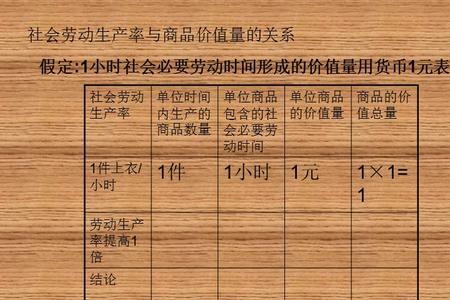 社会劳动生产率与商品价值量的关系
假定:1小时社会必要劳动时间形成的价值量用货币1元表
社会劳动
生产率
单位时间
内生产的
商品数量
单位商品
包含的社
会必要劳
动时间
单位商品
的价值量
商品的价
值总量
1件上衣/
小时
1件
1小时
1元
1×1=
1
劳动生产
率提高1
倍
结论